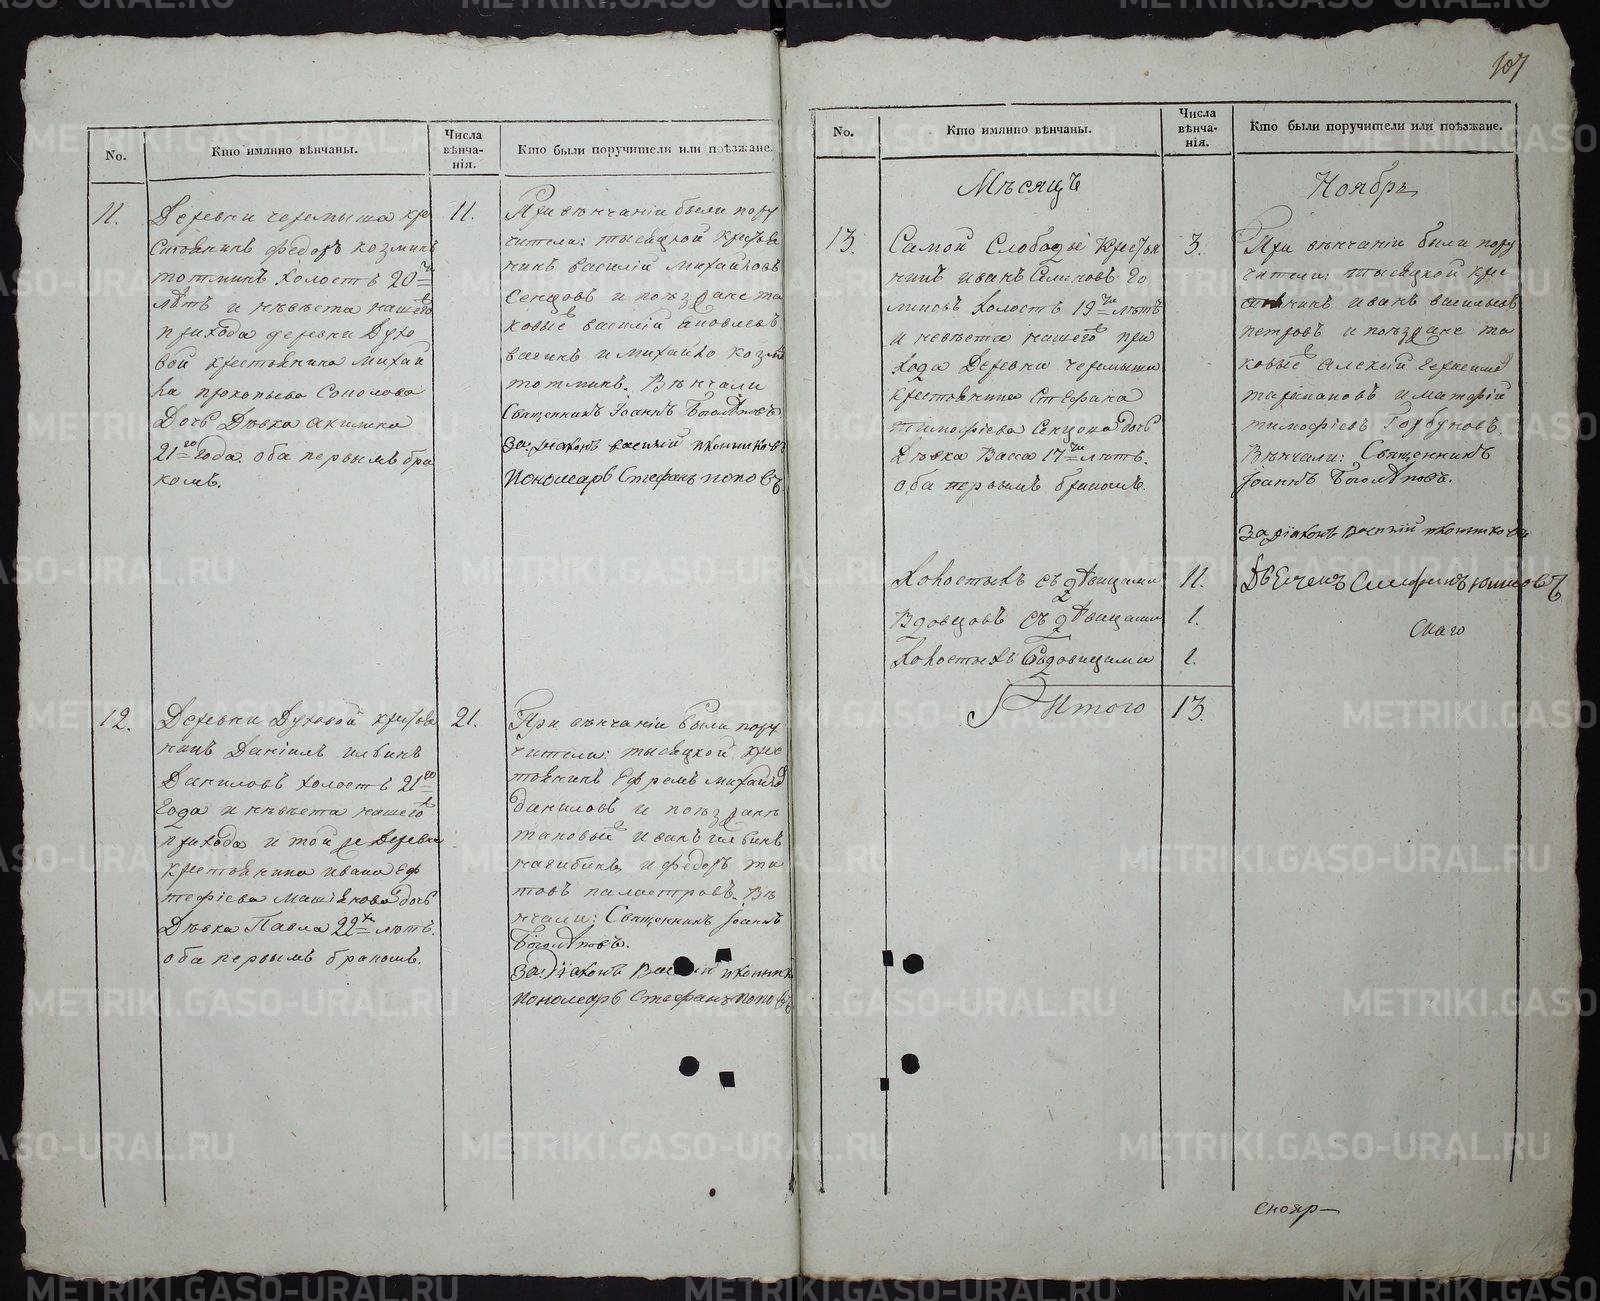 No.
Кто имянно вѣнчаны.
Числа
вѣнча-
нія.
Кто были поручители или поѣзжане.
11.
Деревни черемыша кре
стьянинъ федоръ козминъ
тотминъ холостъ 20ти
лѣтъ и невѣста нашего
прихода деревни Духо
вой крестьянина михай
ла прокопьева Соколова
Дочь Дѣвка акилина
21го года. оба первымъ бра
комъ.
11.
При вѣнчаніи были пору
чители: тысяцкой крестья
нинъ василій михайловъ
Сенцовъ и поѣздане та
ковые василій яковлевъ
вагинъ и михайло козм
тотминъ. Вѣнчали
Священникъ Іоаннъ Боголѣповъ.
За діаконъ василій
Пономарь Стефанъ поповъ.
12.
Деревни Духовой крестья
нинъ Даніилъ ильинъ
Даниловъ холостъ 21го
года и невѣста нашего
прихода и той же Деревни
крестьянина ивана
дочь
Дѣвка Павла 22хъ лѣтъ.
оба первымъ бракомъ.
21.
При вѣнчаніи были пору
чители: тысяцкой крес
тьянинъ Ефремъ михайловъ
даниловъ и поѣздане
таковый иванъ ильинъ
нагибинъ и федоръ ти
товъ паластровъ. Вѣ
нчали: Священникъ іоаннъ
Боголѣповъ.
За діаконъ Василий
Пономарь Стефанъ поповъ
107
No.
Кто имянно вѣнчаны.
Числа
вѣнча-
нія.
Кто были поручители или поѣзжане.
Мѣсяцъ
Ноябрь
13.
Самой Слободы крестья
нинъ иванъ Семеновъ Го
миновъ холостъ 19ти лѣтъ
и невѣста нашего при
хода Деревни черемыша
крестьянина Стефана
тимофѣева Сенцова дочь
Дѣвка Васса 17ти лѣтъ.
оба первымъ бракомъ.
3.
При вѣнчаніи были пору
чители: тысяцкой кре
стьянинъ иванъ васильевъ
петровъ и поѣздане та
ковые алексѣй
таракановъ и матфій
тимофѣевъ Горбуновъ.
Вѣнчали: Священникъ
іоаннъ Боголѣповъ.
За діаконъ Василій
Дьячекъ
Холостыхъ съ дѣвицами 11.
Вдовцовъ съ дѣвицами 1.
Холостыхъ Съ вдовицами 1.
Итого 13.